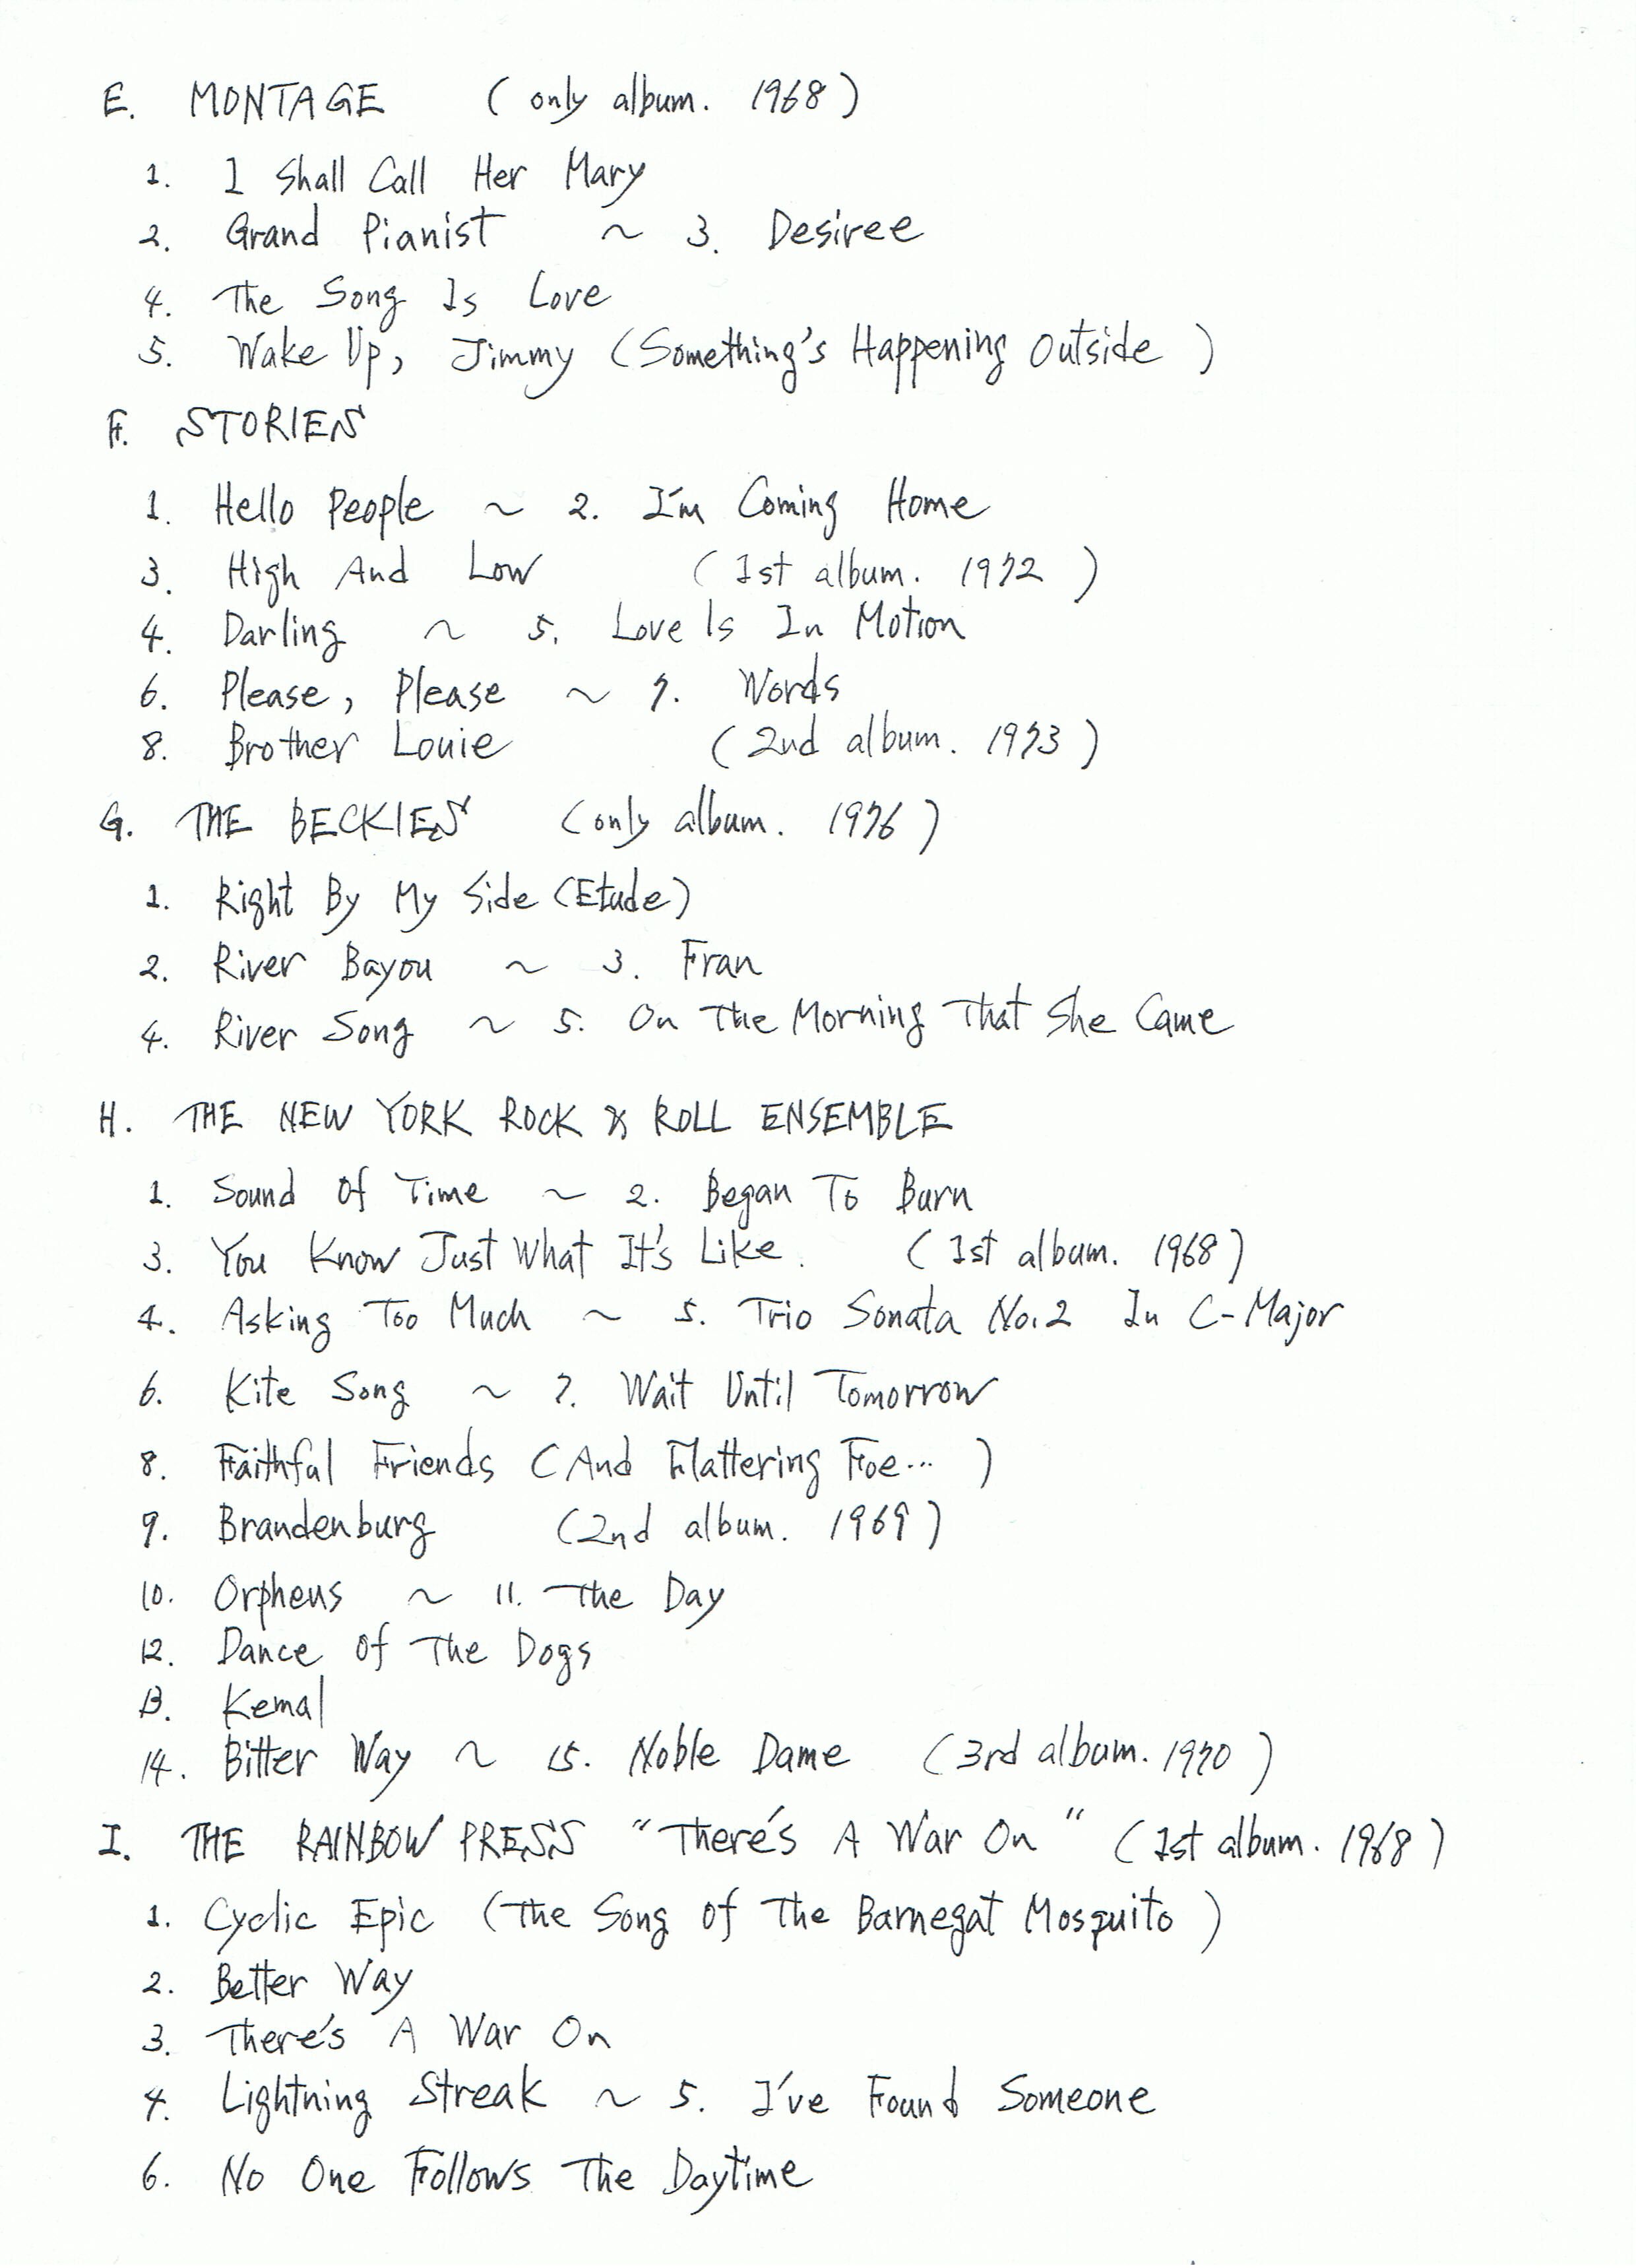 E. MONTAGE (only album. 1968)
1. I Shall Call Her Mary
2. Grand Pianist ~ 3. Desiree
4. The Song Is Love
5. Wake Up, Jimmy (Something's Happening Outside)
F. STORIES
1. Hello People ~ 2. I'm Coming Home
3. High And Low (1st album. 1972)
4. Darling ~ 5. Love Is In Motion
6. Please, Please ~ 7. Words
8. Brother Louie (2nd album. 1973)
G. THE BECKIES (only album. 1976)
1. Right By My Side (Etude)
2. River Bayou ~ 3. Fran
4. River Song ~ 5. On The Morning That She Came
H. THE NEW YORK ROCK & ROLL ENSEMBLE
1. Sound Of Time ~ 2. Began To Burn
3. You Know Just What It's Like. (1st album. 1968)
4. Asking Too Much ~ 5. Trio Sonata No.2 In C-Major
6. Kite Song ~ 7. Wait Until Tomorrow
8. Faithful Friends (And Flattering Foe...)
9. Brandenburg (2nd album. 1969)
10. Orpheus ~ 11. The Day
12. Dance Of The Dogs
13. Kemal
14. Bitter Way ~ 15. Noble Dame (3rd album. 1970)
I. THE RAINBOW PRESS "There's A War On" (1st album. 1968)
1. Cyclic Epic (The Song Of The Barnegat Mosquito)
2. Better Way
3. There's A War On
4. Lightning Streak ~ 5. I've Found Someone
6. No One Follows The Daytime